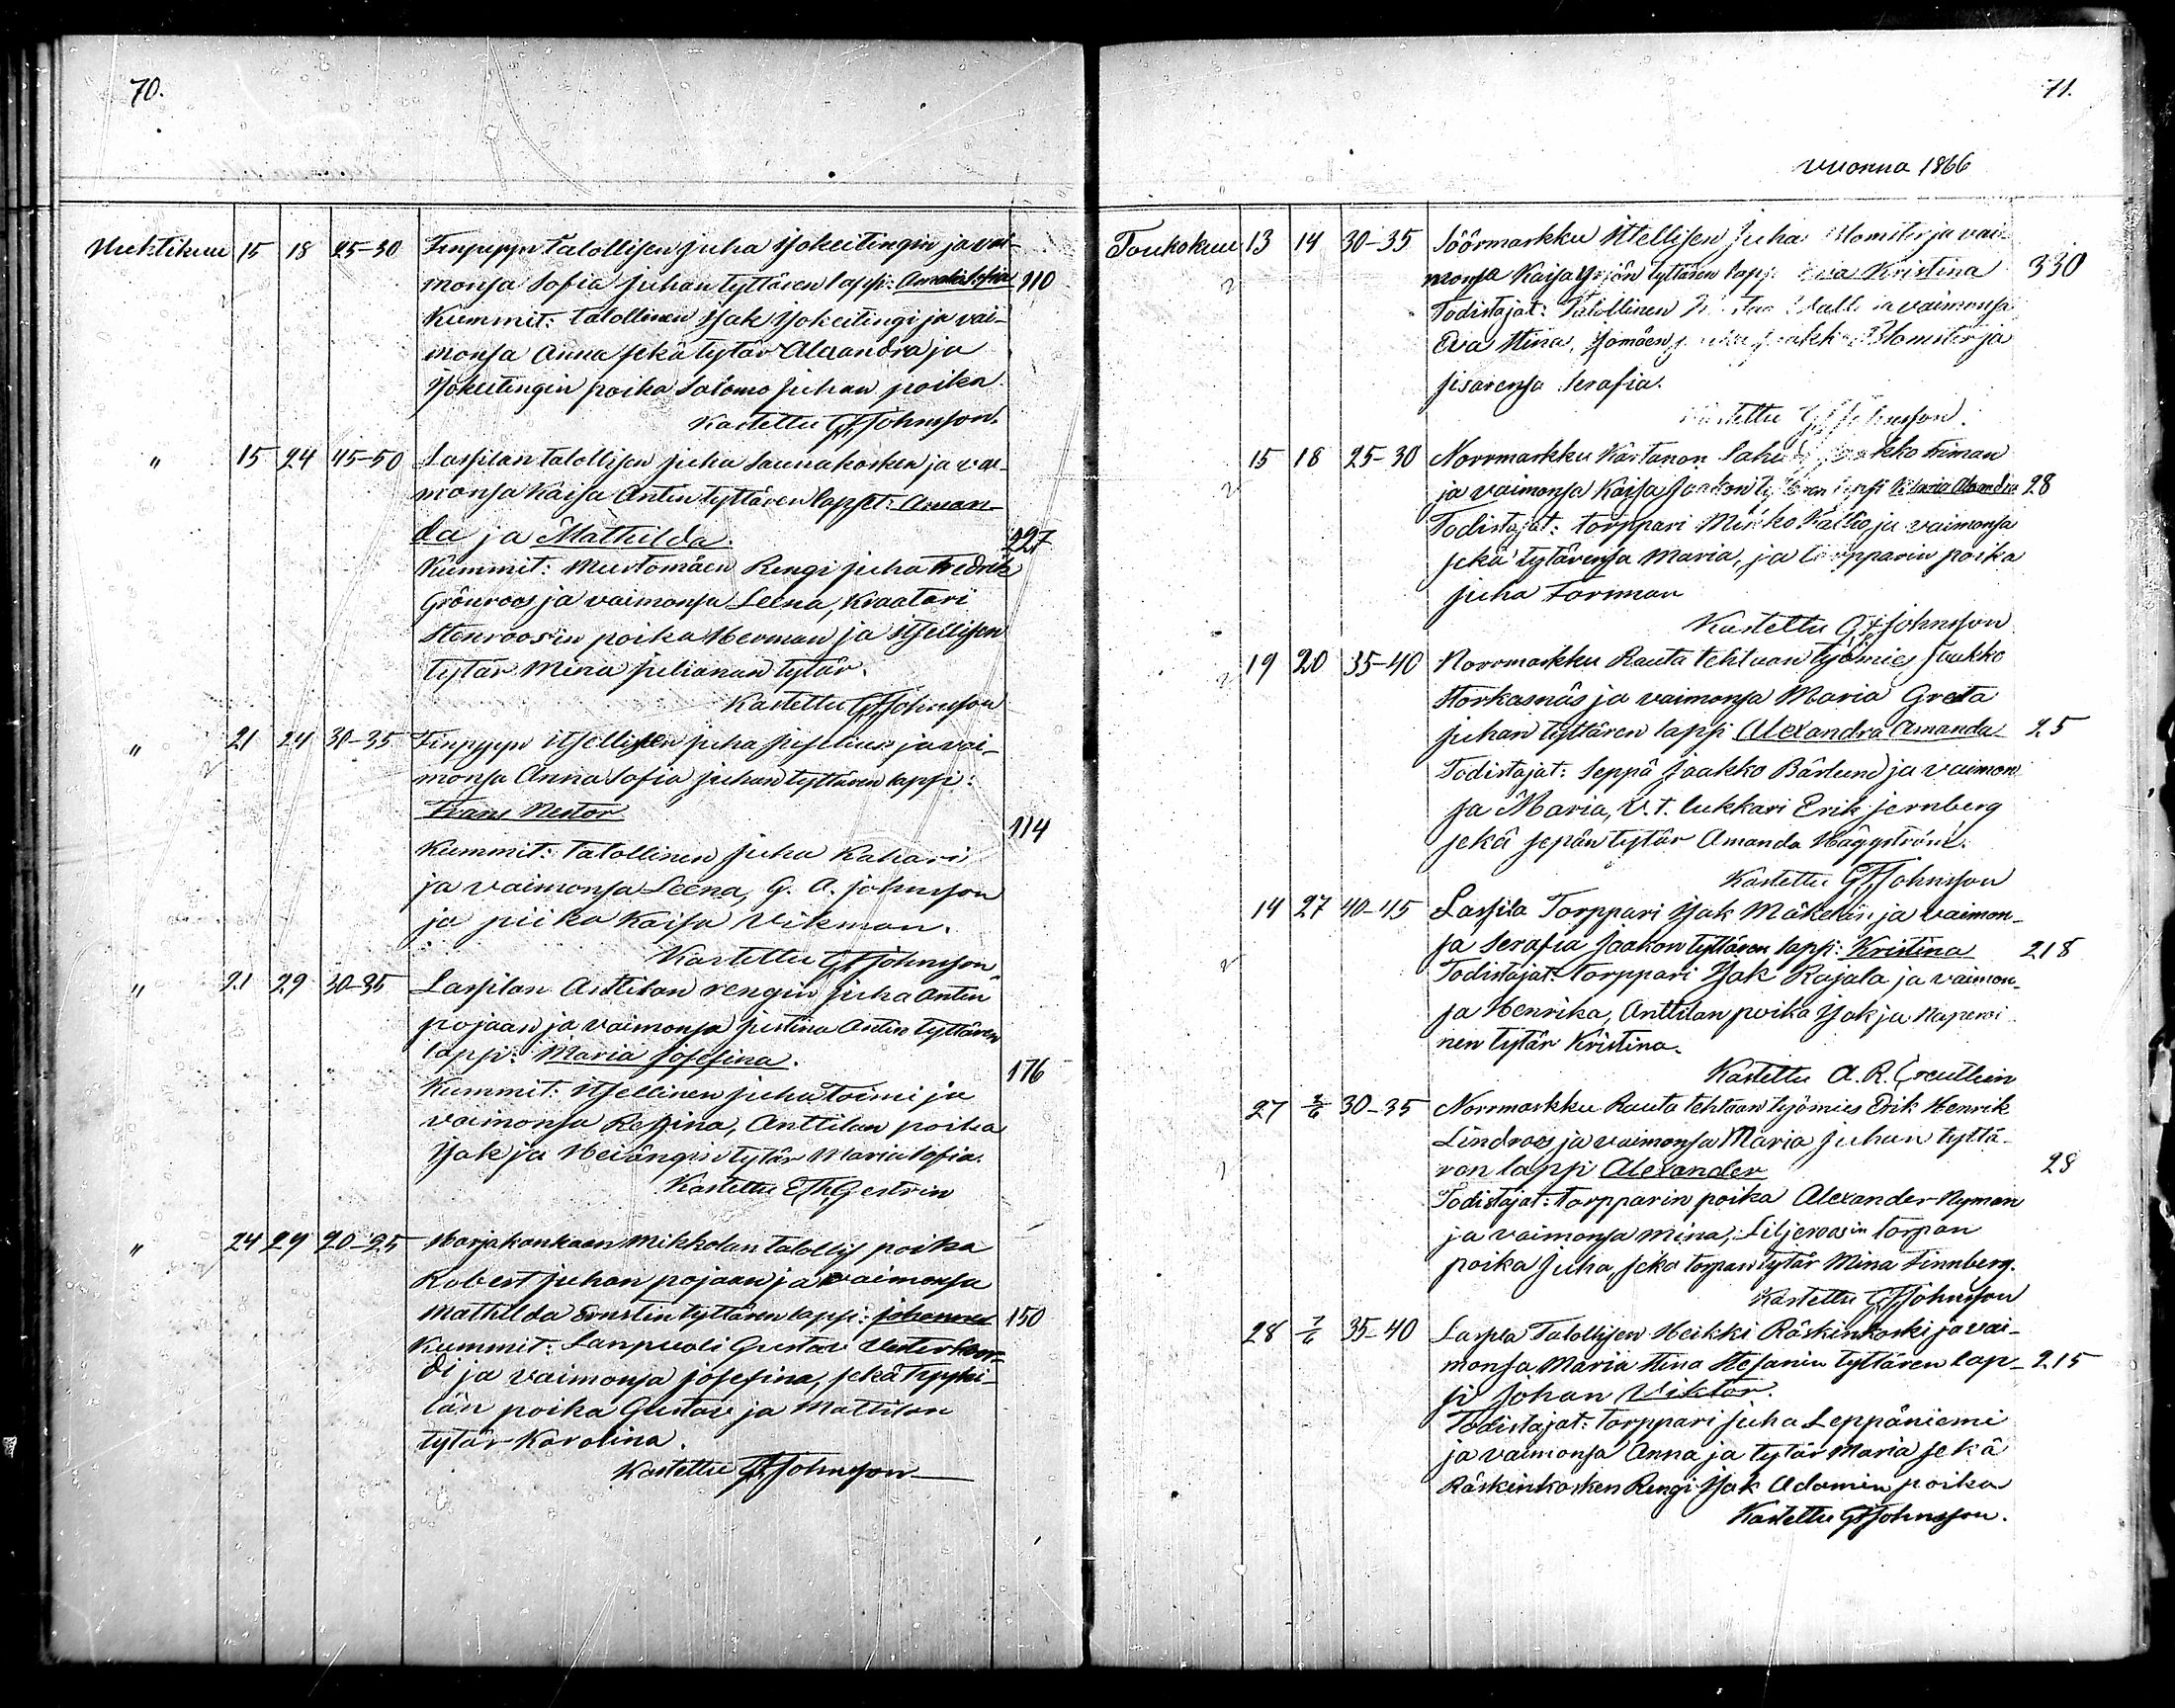 70.
Huhtikuu 15 18 25-30 Finpyyn Talollisen Juha Isokeitingin ja vai-
monsa Sofia Juhan tyttären lapsi: Amalia Sofia 110
Kummit: talollinen Isak Isokeitingi ja vai-
monsa Anna sekä tytär Alexandra ja
Isokeitingin poika Salomo Juhan poika
Kastettu G.F. Johnsson.
" 15 24 45-50 Lassilan talollisen Juha Saunakosken ja vai-
monsa Kaisa Antin tyttären lapset: Aman-
da ja Mathilda. 227
Kummit: Mustomäen Rengi Juha Fredrik
Grönroos ja vaimonsa Leena, Kraatari
Stenroosin poika Herman ja Itsellisen
tytär Mina Julianan tytär.
Kastettu G.F. Johnsson
" 21 24 30-35 Finpyyn itsellisen Juha ja vai-
monsa Anna Sofia Juhan tyttären lapsi:
Frans Nestor 114
Kummit: talollinen Juha Kahari
ja vaimonsa Leena, G. A. Johnsson
ja piika Kaisa Vikman.
Kastettu G.F. Johnsson
" 21 29 30-35 Lassilan Anttilan rengin Juha Antin
pojaan ja vaimonsa Justina Antin tyttären
lapsi: Maria Josefina. 176
Kummit: itsellinen Juha Toimi ja
vaimonsa Regina, Anttilan poika
Isak ja tytär Maria Sofia.
Kastettu E. Th. Gestrin
" 24 29 20-25 Harjakankaan Mikkolan talollis poika
Robert Juhan pojaan ja vaimonsa
Mathilda Ernstin tyttären lapsi: Johannes 150
Kummit: Lanpuoli Gustav
di ja vaimonsa Josefina, sekä Tyyki-
län poika Gustav ja Mattilan
tytär Karolina.
Kastettu G.F. Johnsson
71.
vuonna 1866
Toukokuu 13 14 30-35 Söörmarkku Ittellisen Juha Blomster ja vai-
monsa Kaisa Yrjön tyttären lapsi Eva Kristina 330
Todistajat: Talollinen ja vaimonsa
Eva Stina, Isomäen Jaakko Blomster ja
sisarensa Serafia.
Kastettu G.F. Johnsson.
15 18 25-30 Norrmarkku Kartanon Jaakko Friman
ja vaimonsa Kaisa Jaakon tyttären lapsi Maria Alexandra 28
Todistajat: torppari Mikko Kallio ja vaimonsa
sekä tytärensa Maria, ja torpparin poika
Juha Forsman
Kastettu G.F. Johnsson
19 20 35-40 Norrmarkku Rauta tehtaan työmies Jaakko
Storkasnäs ja vaimonsa Maria Greta
Juhan tyttären lapsi Alexandra Amanda 25
Todistajat: Seppä Jaakko Bärlund ja vaimon
sa Maria, V.t. lukkari Erik Jernberg
sekä sepän tytär Amanda Häggström.
Kastettu G.F. Johnsson
14 27 40-45 Lassila Torppari Isak Mäkelän ja vaimon-
sa Serafia Jaakon tyttären lapsi: Kristina 218
Todistajat: torppari Isak Rajala ja vaimon-
sa Henrika, Anttilan poika Isak ja
nen tytär Kristina.
Kastettu A. R. Creutlein
27 2/6 30-35 Norrmarkku Rauta tehtaan työmies Erik Henrik
Lindroos ja vaimonsa Maria Juhan tyttä-
ren lapsi Alexander 28
Todistajat: torpparin poika Alexander Nyman
ja vaimonsa Mina, Liljeroosin torpan
poika Juha, seka torpan tytär Mina Finnberg.
Kastettu G.F. Johnsson
28 7/6 35-40 Lassila Talollisen Heikki Räskinkoski ja vai-
monsa Maria Stina Stefanin tyttären lap- 215
si Johan Viktor.
Todistajat: torppari Juha Leppäniemi
ja vaimonsa Anna ja tytär Maria sekä
Räskinkosken Rengi Isak Adamin poika
Kastettu G.F. Johnsson.